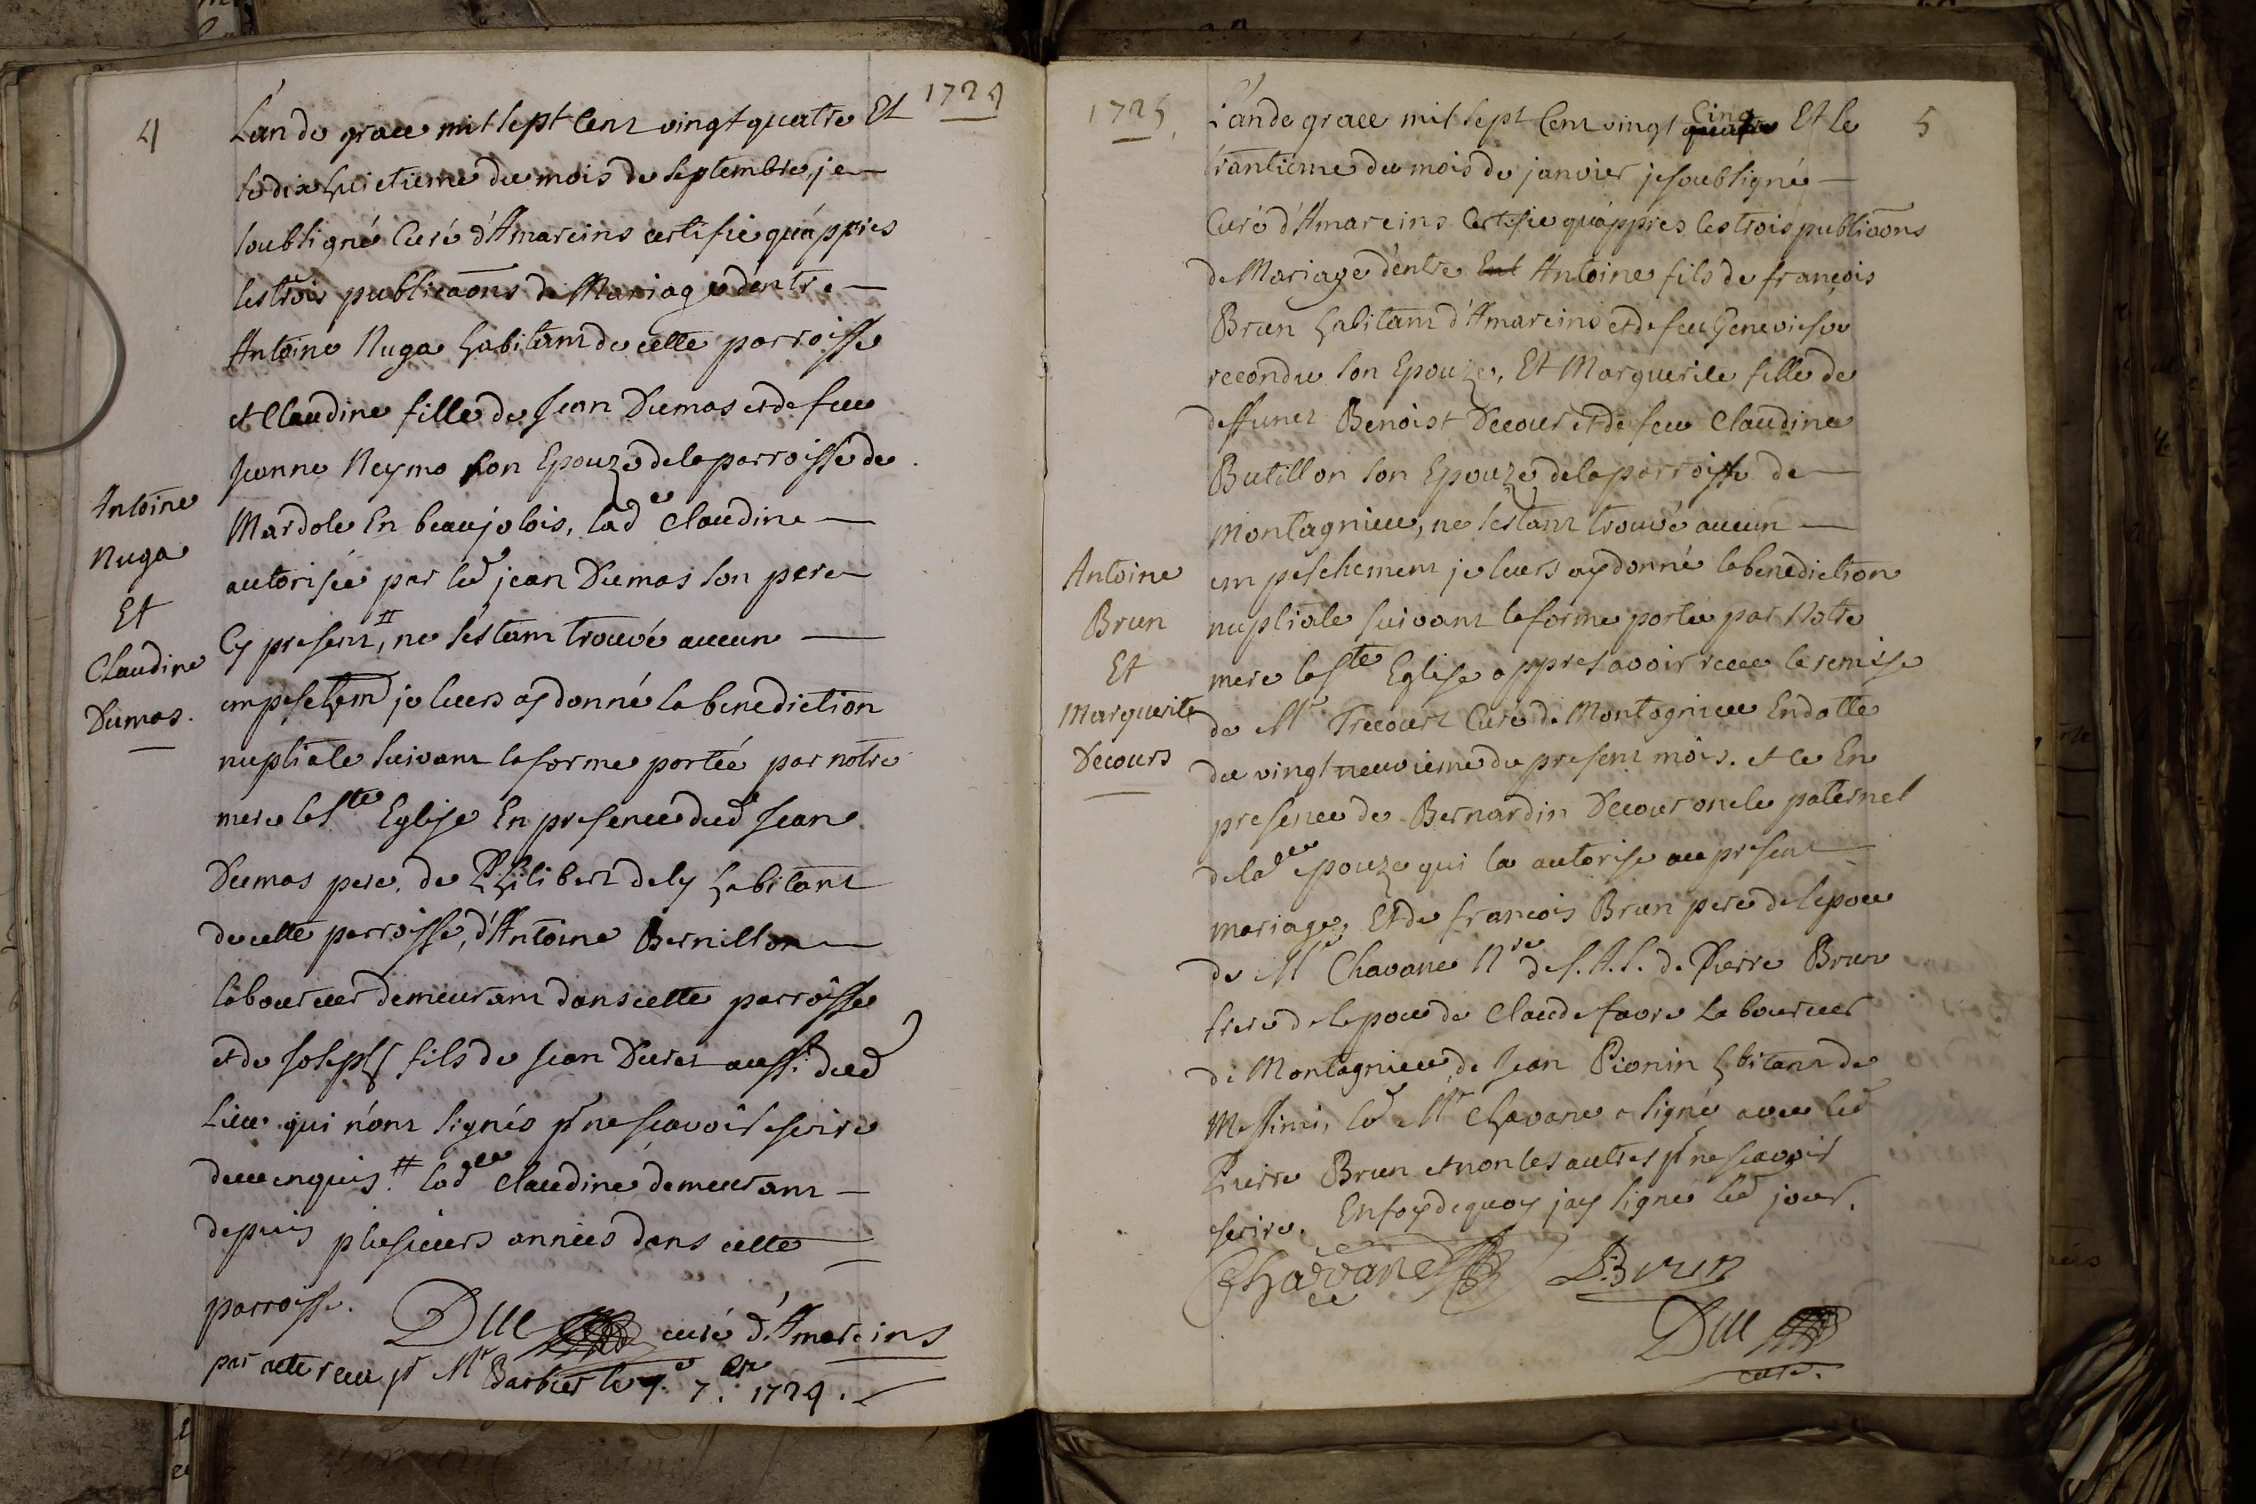 4
1724
L'an de grace mil sept cent vingt quatre Et
le dix huictieme du mois de septembre, je
soubsigné Curé d'Amareins certifie qu'áppres
les trois publicaōns de Mariage d'entre
Antoine Nuga habitant de cette parroisse
et Claudine fille de Jean Dumas et de feue
Jeanne Reyma son Epouze de la parroisse de
Mardole En beaujolois, lad.e Claudine
autorisée par led jean Dumas son pere
Cy present, # ne s'éstant trouvé aucun
empeschem̄ je leurs ay donné la benediction
nuptiale suivant la forme portée par notre
mere la Ste Eglise En presence dud Jean
Dumas pere. de Philibert dely habitant
de cette parroisse, d'Antoine Bernillon
laboureur demeurant dans cette parroisse
et de Joseph fils de Jean Duret auss.i dud
Lieu qui n'ont signés pr ne scavoir escrire
de ce enquis. # lad.e Claudine demeurant
depuis plusieurs années dans cette
parroisse.
Duc curé d'Amareins
par acte receu pr Mr Barbier le 7.e 7.bre 1724.
Antoine
Nuga
Et
Claudine
Dumas.
1725
5
L'an de grace mil sept Cent vingt quatre Cinq Et le
trantieme du mois de janvier je soubsigné
Curé d'Amareins Certifie qu'áppres les trois publicaōns
de Mariage d'entre Ent Antoine fils de françois
Brun habitant d'Amareins et de feu Genevieve
recondu son Epouze, Et Marguerite fille de
deffunct Benoist Decour et de feue Claudine
Butillon son Epouze de la parroisse de
Montagnieu, ne s'estant trouvé aucun
empeschement je leurs ay donné la benediction
nuptiale suivant la forme portée par Notre
mere la Ste Eglise appres avoir receu la remise
de Mr Trecourt Curé de Montagnieu En datte
du vingt neuvieme du present mois. et ce En
presence de Bernardin Decour oncle paternel
de lad.e epouze qui la autorise au present
mariage, Et de françois Brun pere de lepoux
de Mr Chavane Nre de S. A. S. de Pierre Brun
frere de lepoux de Claude favre Laboureur
de Montagnieu, de Jean Pionin hbitant de
Messimi, led Mr Chavane a signé avec led
Pierre Brun et non les autres pr ne scavoir
escrire. En foy de quoy jay signé led jour.
Chavane
P. Brun
Duc
curé.
Antoine
Brun
Et
Marguerite
Decours